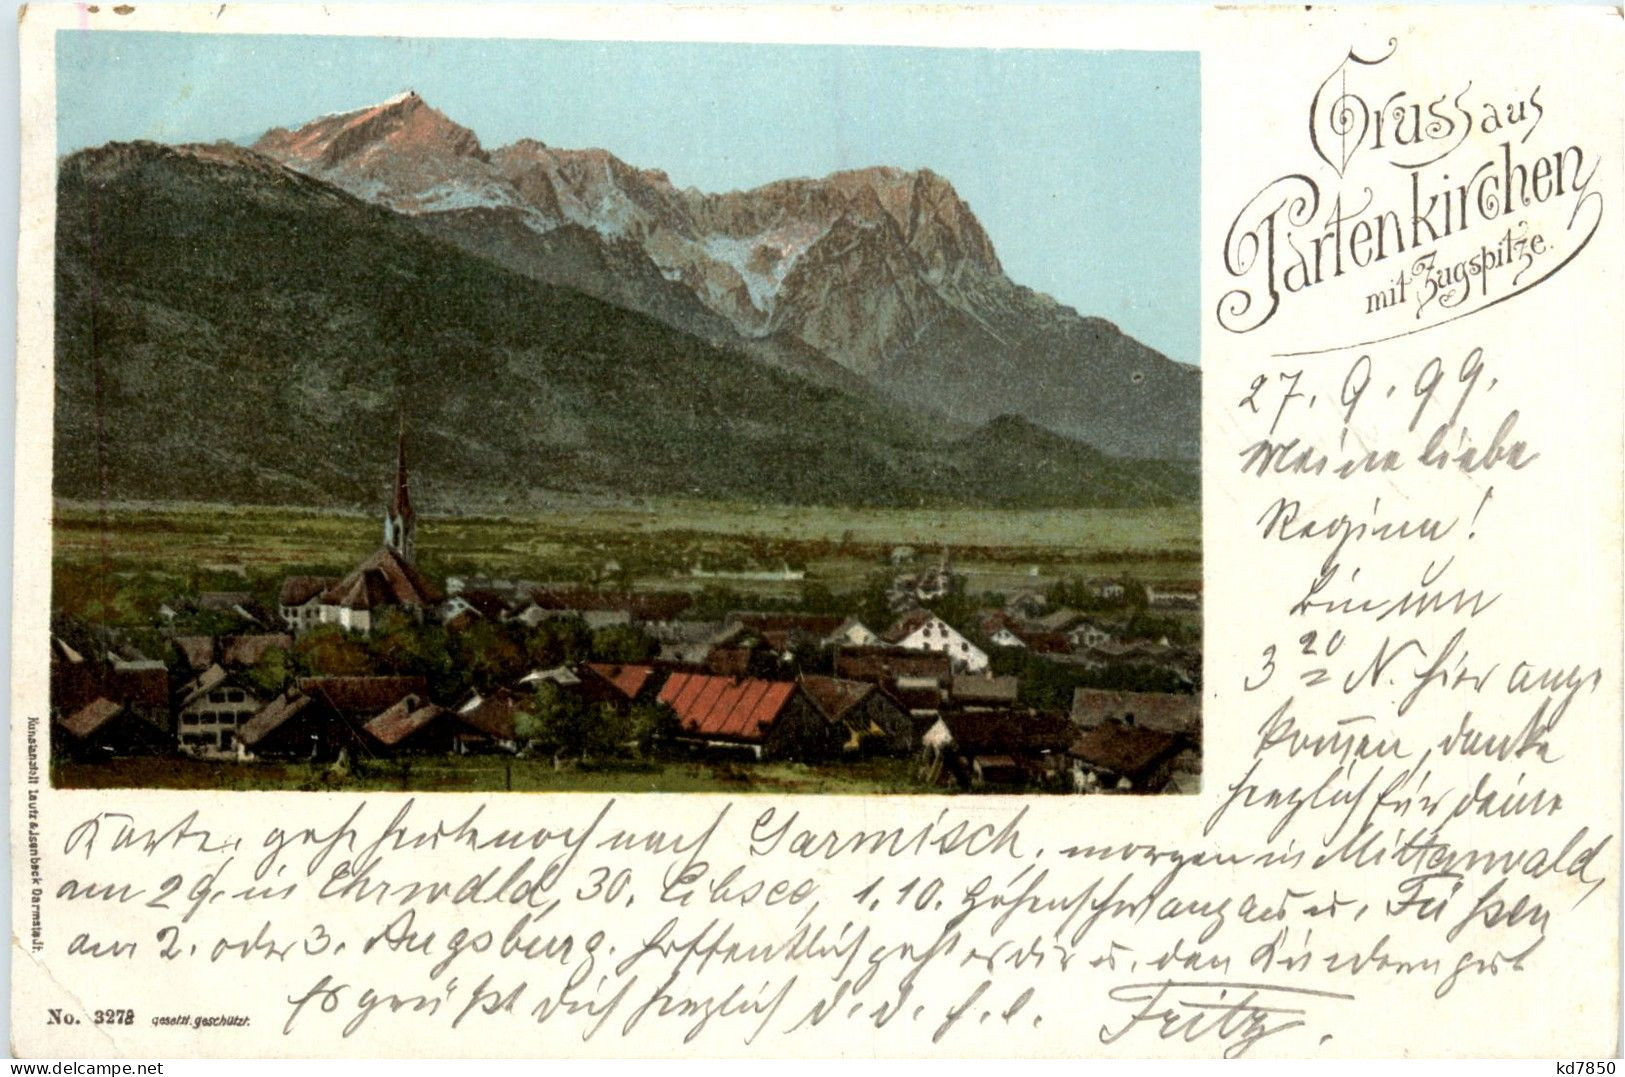 Gruss aus
Partenkirchen
mit Zugspitze.
27. 9. 99.
Meine liebe
Regina!
Bin um
3 20 N. hier ange
kommen, danke
herzlich für deine
Karte, gehe heute noch nach Garmisch, morgen in Mittenwald,
am 29. in Ehrwald, 30. Eibsee, 1.10. Hohenschwangau u. Füßen
am 2. oder 3. Augsburg. Hoffentlich geht es dir u. den Kindern gut
Es grüßt Dich herzlich d. d. h. l. Fritz.
Kunstanstalt Lautz & Isenbeck Darmstadt.
No. 3278 gesetzl. geschützt.
delcampe.net
kd7850